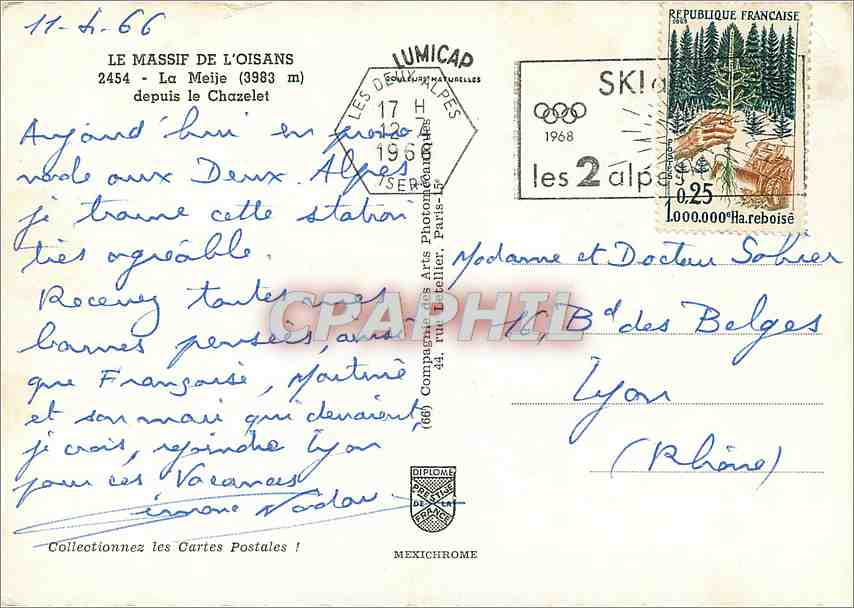 11-4-66
LE MASSIF DE L'OISANS
2454 - La Meije (3983 m)
depuis le Chazelet
LUMICAP
COULEURS NATURELLES
LES DEUX-ALPES
17 H
12-4
1966
ISERE
SKI
1968
les 2 alpes
REPUBLIQUE FRANÇAISE
1965
0,25
1.000.000e Ha.reboisé
Aujourd'hui en prome
nade aux Deux Alpes
je trouve cette station
très agréable.
Recevez toutes mes
bonnes pensées, ainsi
que Françoise, Martine
et son mari qui devaient,
je crois, rejoindre Lyon
pour ces Vacances
Simone
Madame et Docteur
16, Bd des Belges
Lyon
(Rhône)
(66) Compagnie des Arts Photomécaniques
44, rue Letellier, Paris-15e
CPAPHIL
DIPLOME
PRESTIGE
DE LA
FRANCE
Collectionnez les Cartes Postales !
MEXICHROME